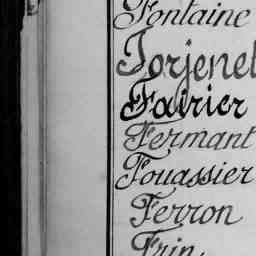 Fontaine
Forjenel
Fairier
Fermant
Fouassier
Ferron
Frin